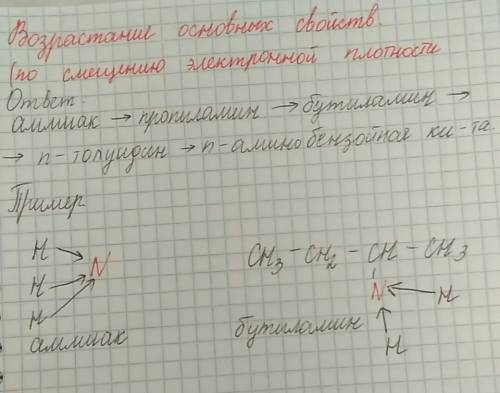 Возрастание основных свойств.
(по смещению электронной плотности
Ответ:
аммиак → пропиламин → бутиламин →
→ п-толуидин → п-аминобензойная ки-та.
Пример
H
H
H
N
аммиак
CH₃ - CH₂ - CH - CH₃
N
H
H
бутиламин